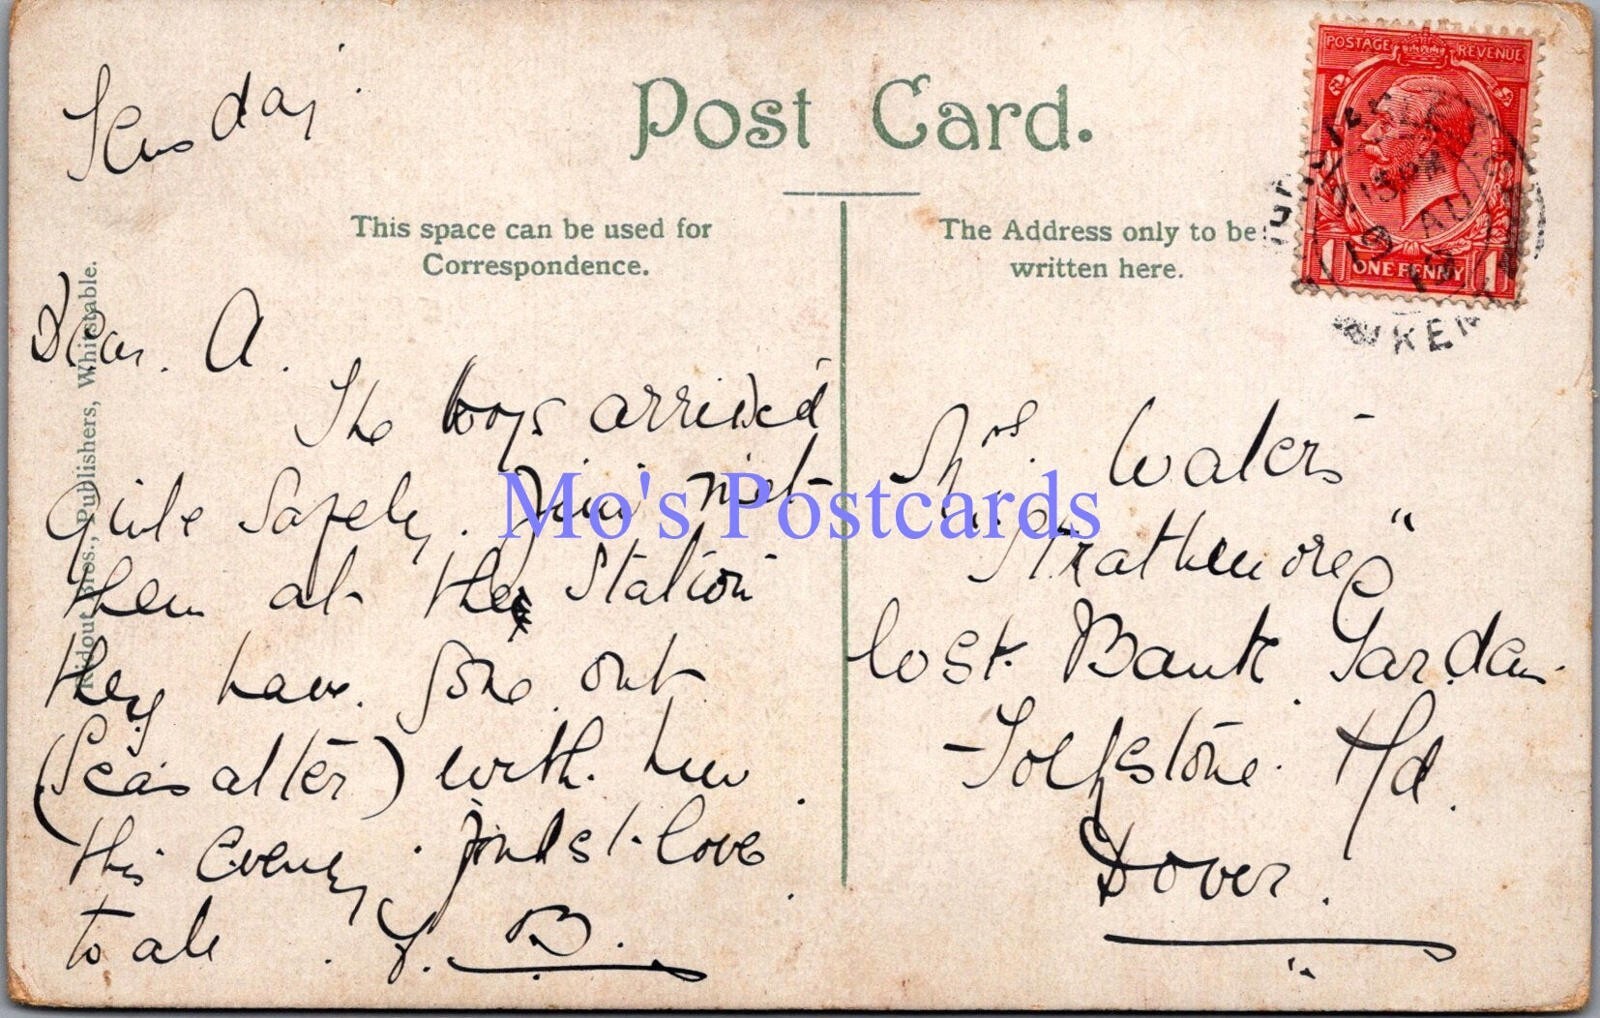 Tuesday.
Post Card.
This space can be used for
Correspondence.
The Address only to be
written here.
POSTAGE REVENUE
1 ONE PENNY 1
2 15 PM
19 AU
19
KENT
Ridout Bros., Publishers, Whitstable.
Dear. A.
The boys arrived
quite safely. Jim met
them at the Station
they have gone out
(Seasalter) with him
this evening. fondest love
to all. Y. B.
Mrs. Waters
"Strathmore"
Cost. Bank Garden
Folkstone Rd.
Dover.
Mo's Postcards